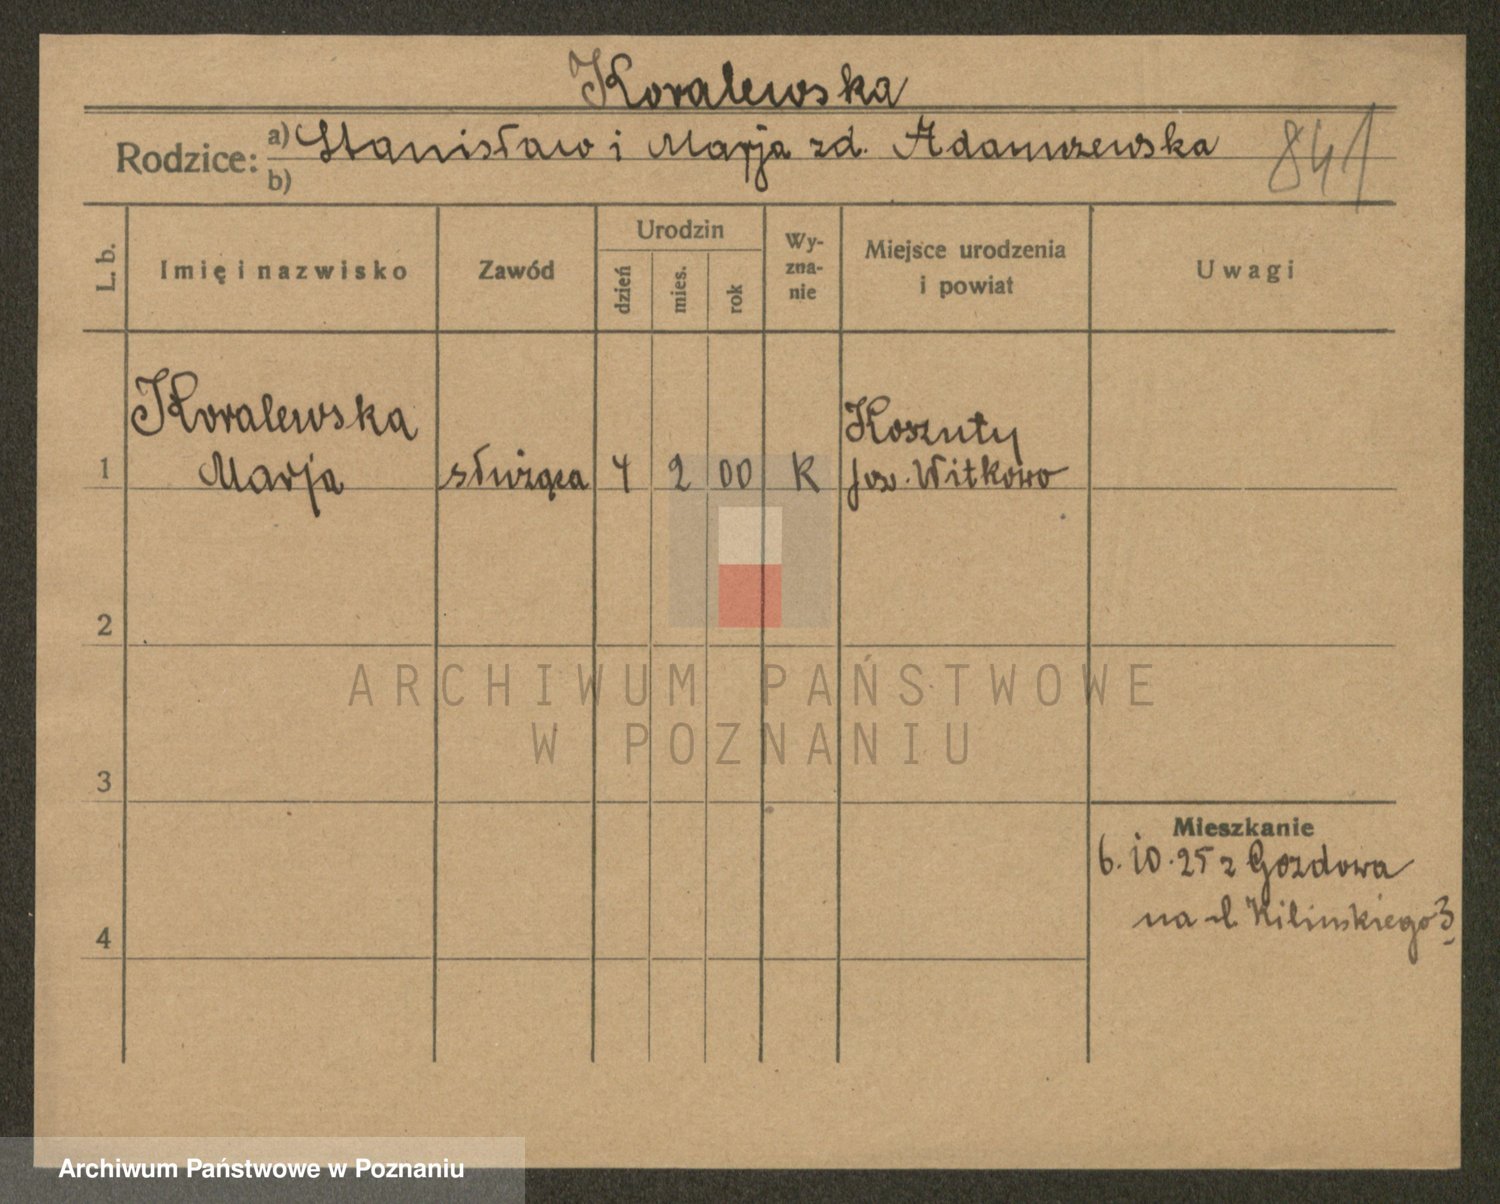 Koralewska
Rodzice: a) Stanisław i Marja zd. Adamczewska 841
b)
L. b. Imię i nazwisko Zawód Urodzin dzień mies. rok Wy-zna-nie Miejsce urodzenia i powiat Uwagi
Koralewska Koszuty
1 Marja służąca 4 2 00 K pow. Witkowo
2
3
Mieszkanie
6. 10. 25 z Gozdowa
4 na ul. Kilinskiego 3
ARCHIWUM PAŃSTWOWE
W POZNANIU
Archiwum Państwowe w Poznaniu